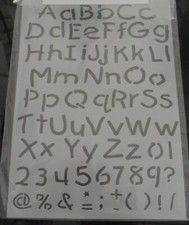 AaBbCc
DdEeFfGg
HhIiJjKkLl
MmNnOo
PpQqRrSs
TtUuVvWw
XxYyZz01
23456789?
@%&*=;:+-()!/